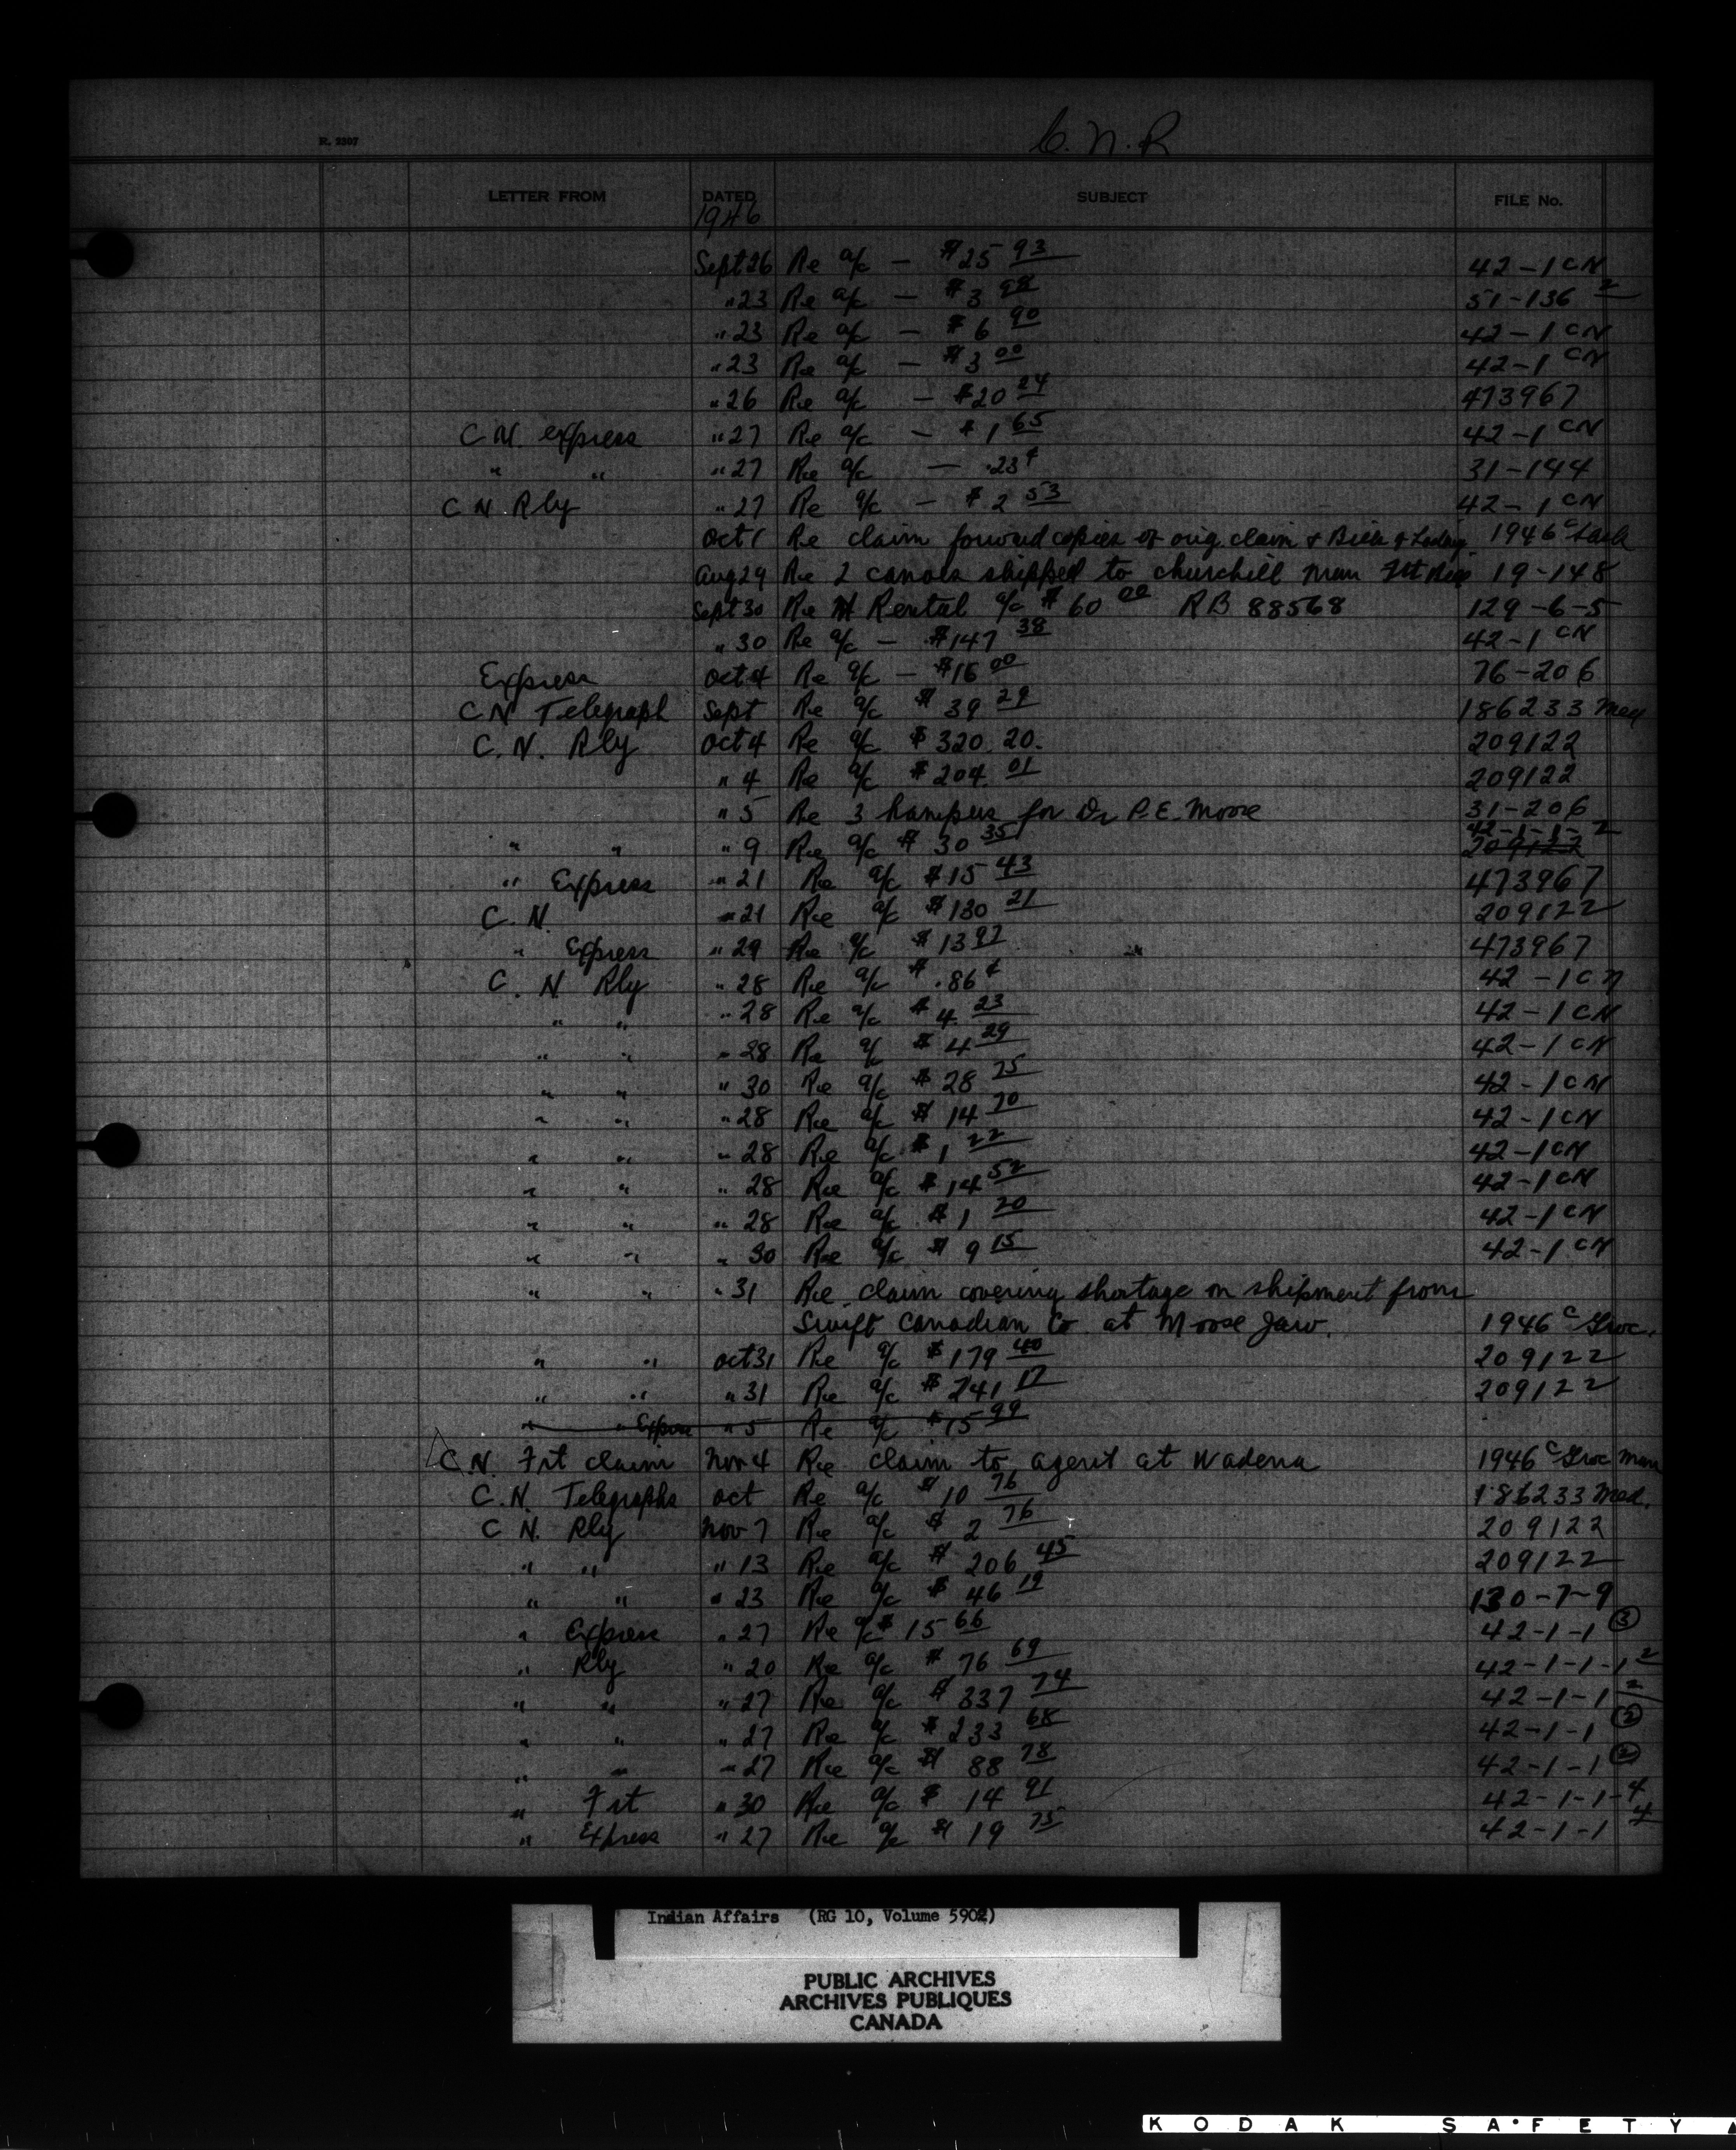 C.N.R
R. 2307
LETTER FROM DATED SUBJECT FILE No.
1946
Sept 26 Re a/c — $25 93 42-1 CN
" 23 Re a/c — $3 98 51-136 2
" 23 Re a/c — $6 90 42-1 CN
" 23 Re a/c — $3 00 42-1 CN
" 26 Re a/c — $20 24 473967
C.N. express " 27 Re a/c — $1 65 42-1 CN
" " " 27 Re a/c — .23¢ 31-144
C N Rly " 27 Re a/c — $2 53 42-1 CN
Oct 1 Re claim forward copies of orig. claim & Bill of Lading 1946 C
Aug 29 Re 2 canoes shipped to churchill man 19-148
Sept 30 Re Rental a/c $60 00 RB 88568 129-6-5
" 30 Re a/c — $147 38 42-1 CN
Express Oct 4 Re a/c — $16 00 76-206
C N Telegraph Sept Re a/c $39 29 186233 Med
C. N. Rly Oct 4 Re a/c $320.20. 209122
" 4 Re a/c $204.01 209122
" 5 Re 3 hampers for Dr P.E. Moore 31-206
42-1-1- 2
" " " 9 Re a/c $30 35 209122
" Express " 21 Re a/c $15 43 473967
C. N. " 21 Re a/c $130 21 209122
" Express " 29 Re a/c $13 97 473967
C. N Rly " 28 Re a/c $.86¢ 42-1 CN
" " " 28 Re a/c $4 23 42-1 CN
" " " 28 Re a/c $4 29 42-1 CN
" " " 30 Re a/c $28 75 42-1 CN
" " " 28 Re a/c $14 70 42-1 CN
" " " 28 Re a/c $1 22 42-1 CN
" " " 28 Re a/c $14 52 42-1 CN
" " " 28 Re a/c $1 20 42-1 CN
" " " 30 Re a/c $9 15 42-1 CN
" " " 31 Re claim covering shortage on shipment from
Swift Canadian Co at Moose Jaw. 1946 C Groc.
" " Oct 31 Re a/c $179 40 209122
" " " 31 Re a/c $241 17 209122
" " Express " 5 Re a/c $15 99
C.N. Frt claim Nov 4 Re claim to agent at Wadena 1946 C Groc Man
C.N. Telegraphs Oct Re a/c $10 76 186233 Med.
C N. Rly Nov 7 Re a/c $2 76 209122
" " " 13 Re a/c $206 45 209122
" " " 23 Re a/c $46 19 130-7-9
" Express " 27 Re a/c $15 66 42-1-1 3
" Rly " 20 Re a/c $76 69 42-1-1-1 2
" " " 27 Re a/c $337 74 42-1-1 2
" " " 27 Re a/c $233 68 42-1-1 2
" " " 27 Re a/c $88 78 42-1-1 2
" Frt " 30 Re a/c $14 91 42-1-1-4
" Express " 27 Re a/c $19 75 42-1-1 4
Indian Affairs (RG 10, Volume 5902)
PUBLIC ARCHIVES
ARCHIVES PUBLIQUES
CANADA
KODAK SAFETY